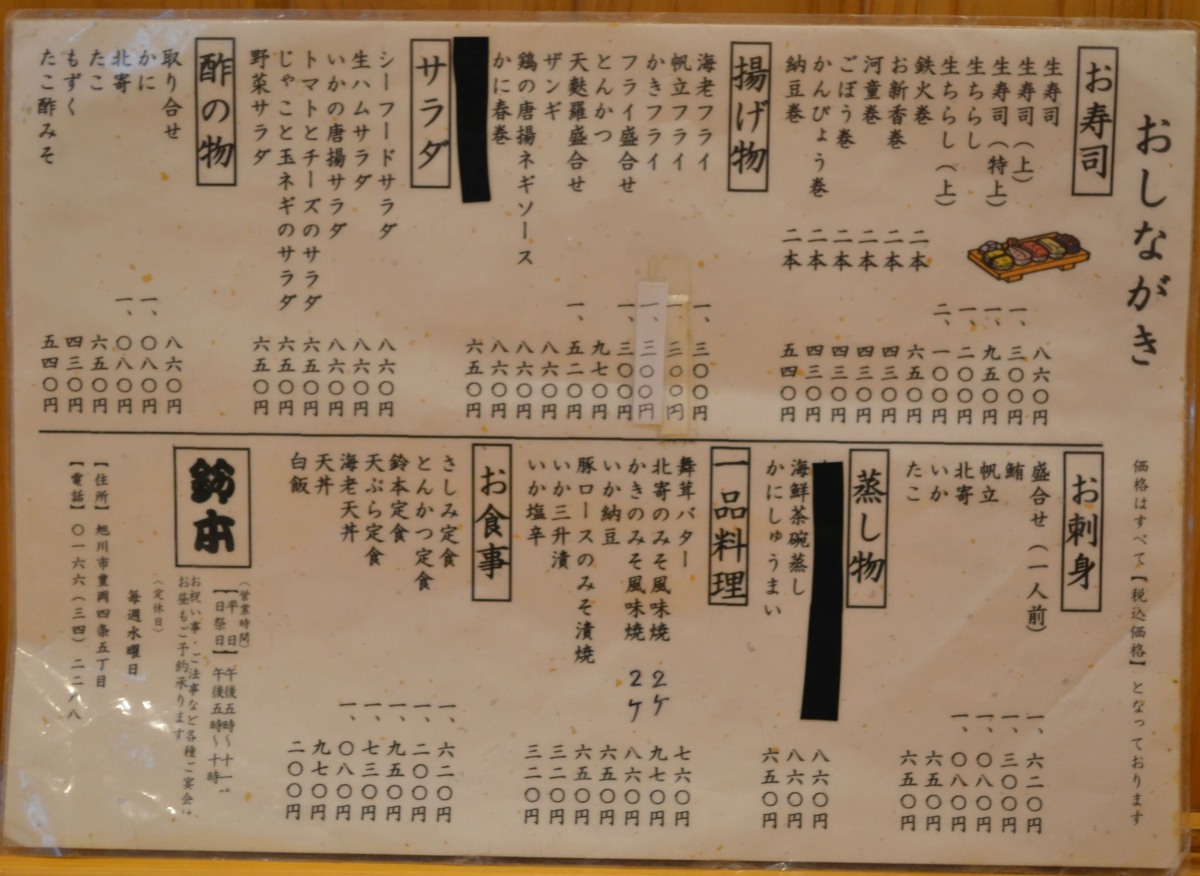 おしながき
お寿司
生寿司 八六〇円
生寿司（上） 一、三〇〇円
生寿司（特上） 一、九五〇円
生ちらし 一、二〇〇円
生ちらし（上） 二、一〇〇円
鉄火巻 二本 六五〇円
お新香巻 二本 四三〇円
河童巻 二本 四三〇円
ごぼう巻 二本 四三〇円
かんぴょう巻 二本 四三〇円
納豆巻 二本 五四〇円
揚げ物
海老フライ 一、三〇〇円
帆立フライ 一、三〇〇円
かきフライ 一、三〇〇円
フライ盛合せ 一、三〇〇円
とんかつ 九七〇円
天麩羅盛合せ 一、五二〇円
ザンギ 八六〇円
鶏の唐揚ネギソース 八六〇円
かに春巻 八六〇円
六五〇円
サラダ
シーフードサラダ 八六〇円
生ハムサラダ 八六〇円
いかの唐揚サラダ 八六〇円
トマトとチーズのサラダ 六五〇円
じゃこと玉ネギのサラダ 六五〇円
野菜サラダ 六五〇円
酢の物
取り合せ 八六〇円
かに 一、〇八〇円
北寄 一、〇八〇円
たこ 六五〇円
もずく 四三〇円
たこ酢みそ 五四〇円
価格はすべて【税込価格】となっております
お刺身
盛合せ（一人前） 一、六二〇円
鮪 一、三〇〇円
帆立 一、〇八〇円
北寄 一、〇八〇円
いか 六五〇円
たこ 六五〇円
蒸し物
八六〇円
海鮮茶碗蒸し 八六〇円
かにしゅうまい 六五〇円
一品料理
舞茸バター 七六〇円
北寄のみそ風味焼 2ケ 九七〇円
かきのみそ風味焼 2ケ 八六〇円
いか納豆 六五〇円
豚ロースのみそ漬焼 六五〇円
いか三升漬 三二〇円
いか塩辛 三二〇円
お食事
さしみ定食 一、六二〇円
とんかつ定食 一、二〇〇円
鈴本定食 一、九五〇円
天ぷら定食 一、七三〇円
海老天丼 一、〇八〇円
天丼 九七〇円
白飯 二〇〇円
鈴本
（営業時間）
【平 日】午後五時〜十一
【日祭日】午後五時〜十時
お祝い事・ご法事など各種ご宴会は
お昼もご予約承ります
（定休日）
毎週水曜日
【住所】旭川市豊岡四条五丁目
【電話】〇一六六（三四）二二八八